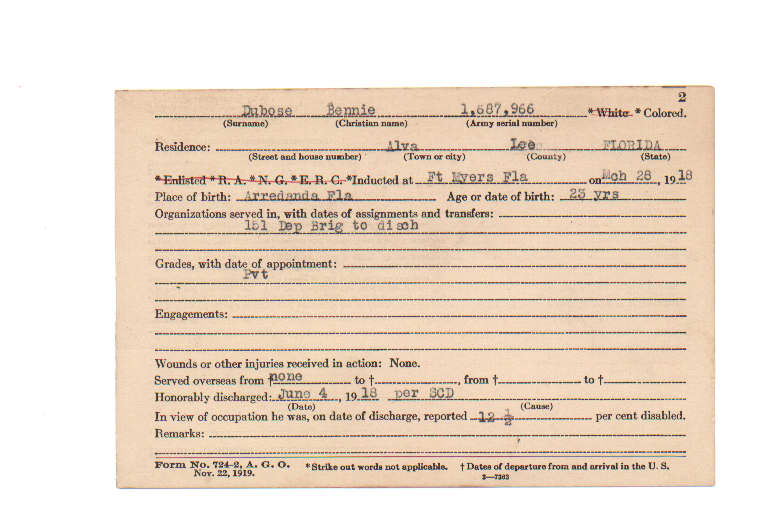 2
Dubose Bennie 1,687,966 * White * Colored.
(Surname) (Christian name) (Army serial number)
Residence: Alva Lee FLORIDA
(Street and house number) (Town or city) (County) (State)
* Enlisted * R. A. * N. G. * E. R. C. * Inducted at Ft Myers Fla on Mch 28, 1918
Place of birth: Arredanda Fla Age or date of birth: 23 yrs
Organizations served in, with dates of assignments and transfers:
151 Dep Brig to disch
Grades, with date of appointment:
Pvt
Engagements:
Wounds or other injuries received in action: None.
Served overseas from † none to †, from † to †
Honorably discharged: June 4, 1918 per SCD
(Date) (Cause)
In view of occupation he was, on date of discharge, reported 12 ½ per cent disabled.
Remarks:
Form No. 724-2, A. G. O. * Strike out words not applicable. † Dates of departure from and arrival in the U. S.
Nov. 22, 1919. 3—7363